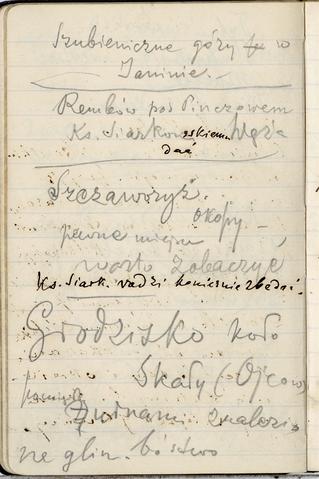 Szubieniczne góry w
Janinie.
Rembów pod Pinczowem
Ks. Siarkowskiemu Węża
dać
Szczaworyż.
okopy
pewne miejsca
warto zobaczyć
Ks. Siark. radzi koniecznie zbadać.
Grodzisko koło
Skały (Ojców
znalezio
ne glin. bóstwo